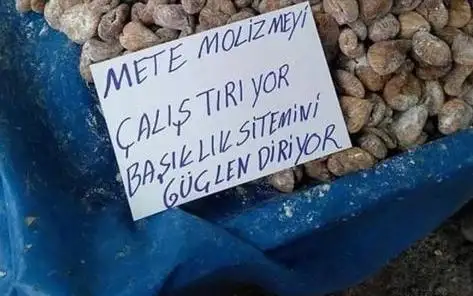 METE MOLİZMEYİ
ÇALIŞTIRIYOR
BAŞIKLIKSİTEMİNİ
GÜÇLENDİRİYOR